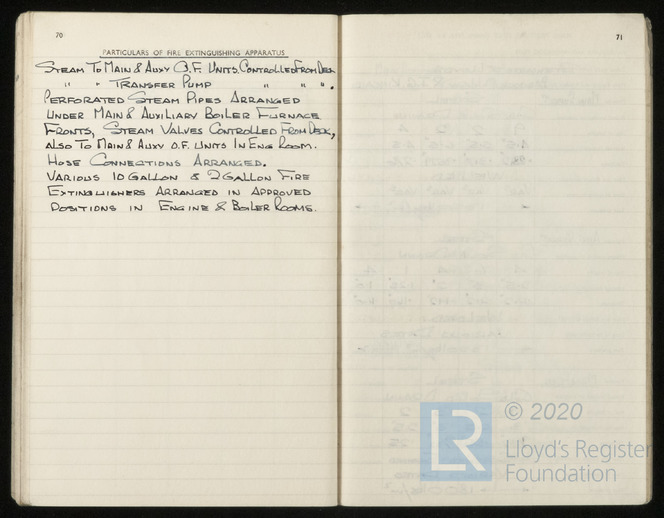 70
PARTICULARS OF FIRE EXTINGUISHING APPARATUS
STEAM TO MAIN & AUXY O.F. UNITS. CONTROLLED FROM DECK
" " TRANSFER PUMP " " ".
PERFORATED STEAM PIPES ARRANGED
UNDER MAIN & AUXILIARY BOILER FURNACE
FRONTS, STEAM VALVES CONTROLLED FROM DECK,
ALSO TO MAIN & AUXY O.F. UNITS IN ENG ROOM.
HOSE CONNECTIONS ARRANGED.
VARIOUS 10 GALLON & 2 GALLON FIRE
EXTINGUISHERS ARRANGED IN APPROVED
POSITIONS IN ENGINE & BOILER ROOMS.
71
LR
© 2020
Lloyd's Register
Foundation